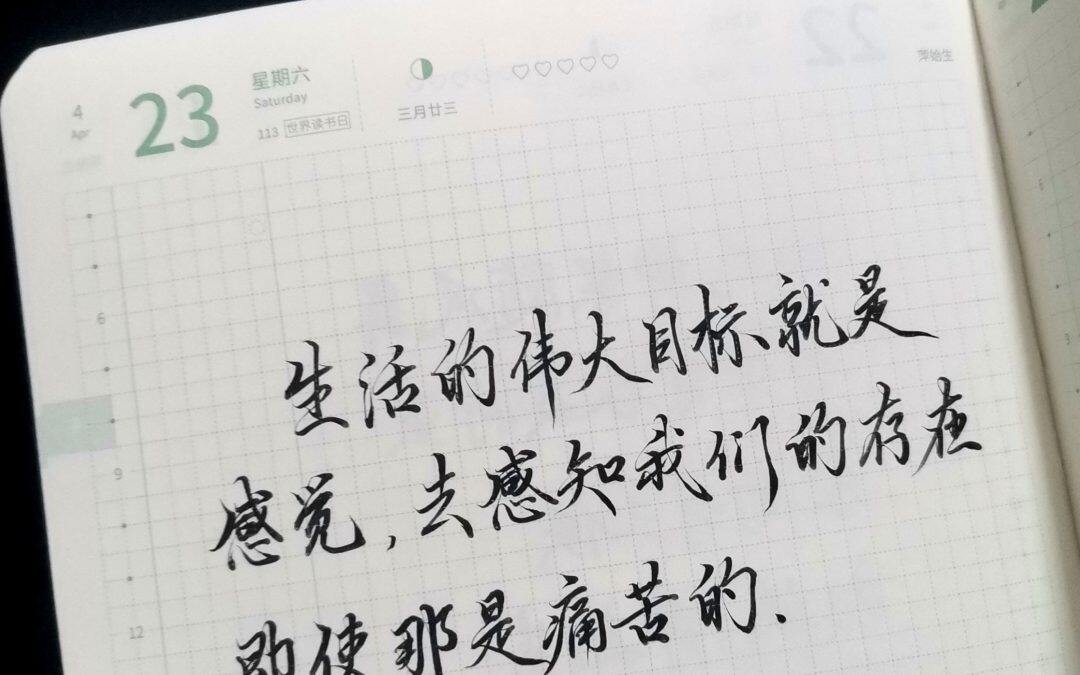 4
Apr
23
星期六
Saturday
113 世界读书日
三月廿三
萍始生
22
6
9
12
生活的伟大目标就是
感觉,去感知我们的存在
即使那是痛苦的.